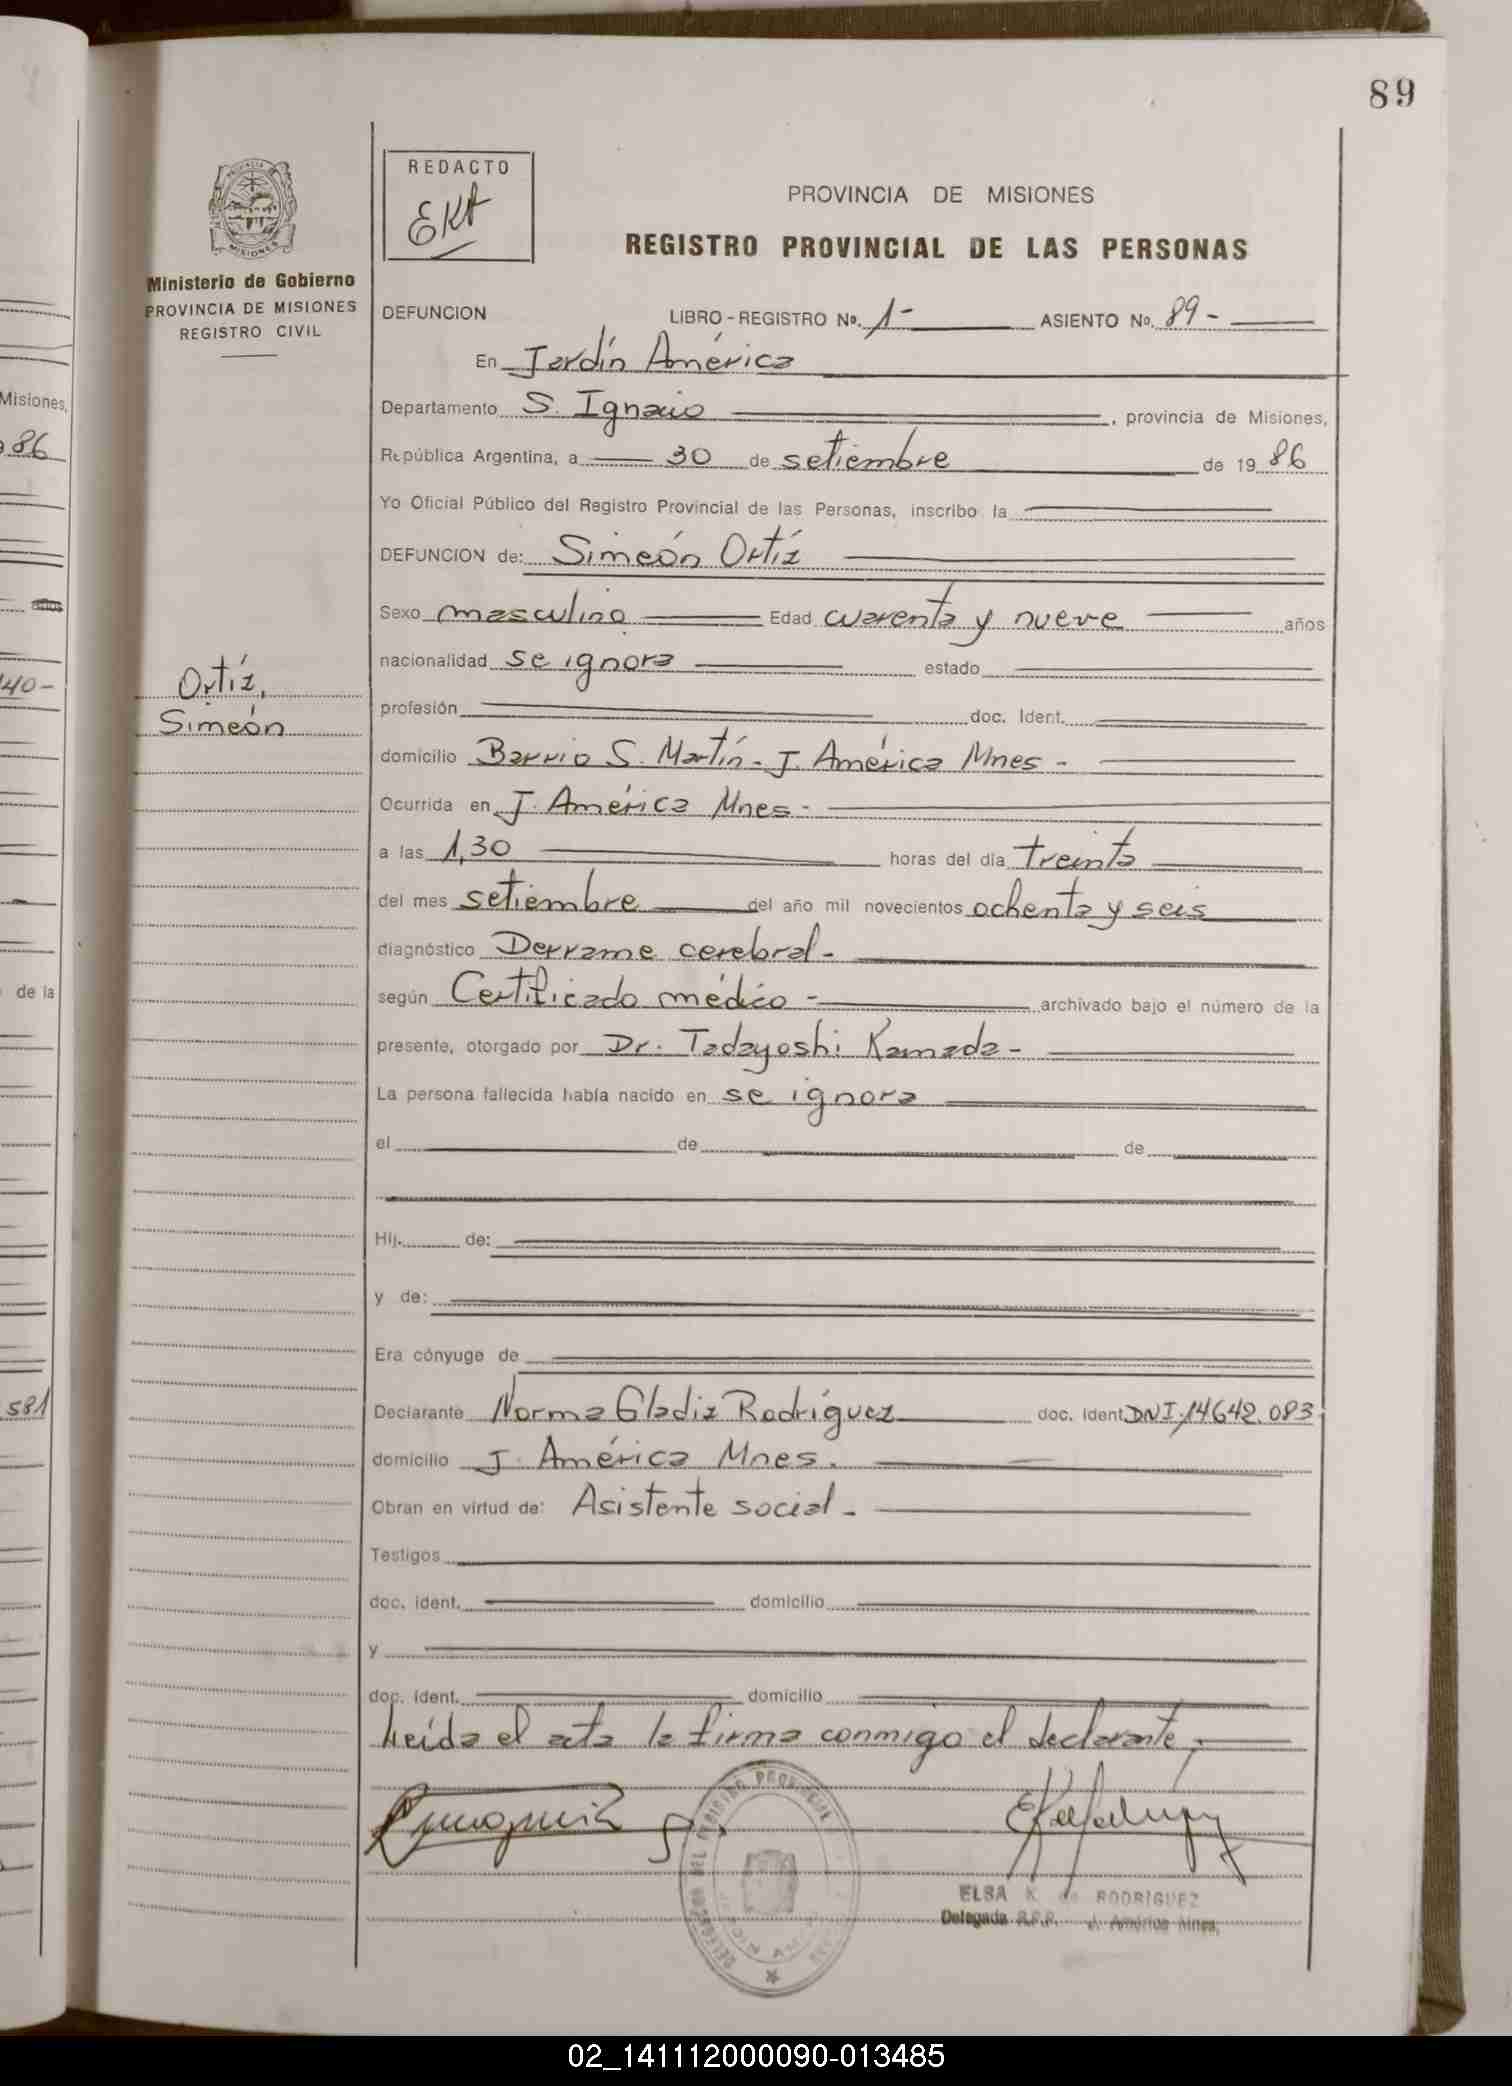 89
PROVINCIA DE MISIONES
Ministerio de Gobierno
PROVINCIA DE MISIONES
REGISTRO CIVIL
REDACTO
EKA
PROVINCIA DE MISIONES
REGISTRO PROVINCIAL DE LAS PERSONAS
DEFUNCION LIBRO - REGISTRO No. 1- ASIENTO No. 89-
En Jardín América
Departamento S. Ignacio, provincia de Misiones,
República Argentina, a 30 de setiembre de 19 86
Yo Oficial Público del Registro Provincial de las Personas, inscribo la
DEFUNCION de: Simeón Ortíz
Sexo masculino Edad cuarenta y nueve años
nacionalidad se ignora estado
Ortíz,
Simeón
profesión doc. Ident.
domicilio Barrio S. Martín - J. América Mnes -
Ocurrida en J. América Mnes -
a las 1,30 horas del día treinta
del mes setiembre del año mil novecientos ochenta y seis
diagnóstico Derrame cerebral -
según Certificado médico - archivado bajo el número de la
presente, otorgado por Dr. Tadayoshi Kamada -
La persona fallecida había nacido en se ignora
el de de
Hij. de:
y de:
Era cónyuge de
Declarante Norma Gladiz Rodríguez doc. ident. DNI. 14642.083
domicilio J. América Mnes.
Obran en virtud de: Asistente social -
Testigos
doc. ident. domicilio
y
doc. ident. domicilio
Leída el acta la firma conmigo el declarante,
ELSA K. de RODRIGUEZ
Delegada R.P.P. J. América Mnes.
Misiones,
86
años
140-
de la
581
02_141112000090-013485